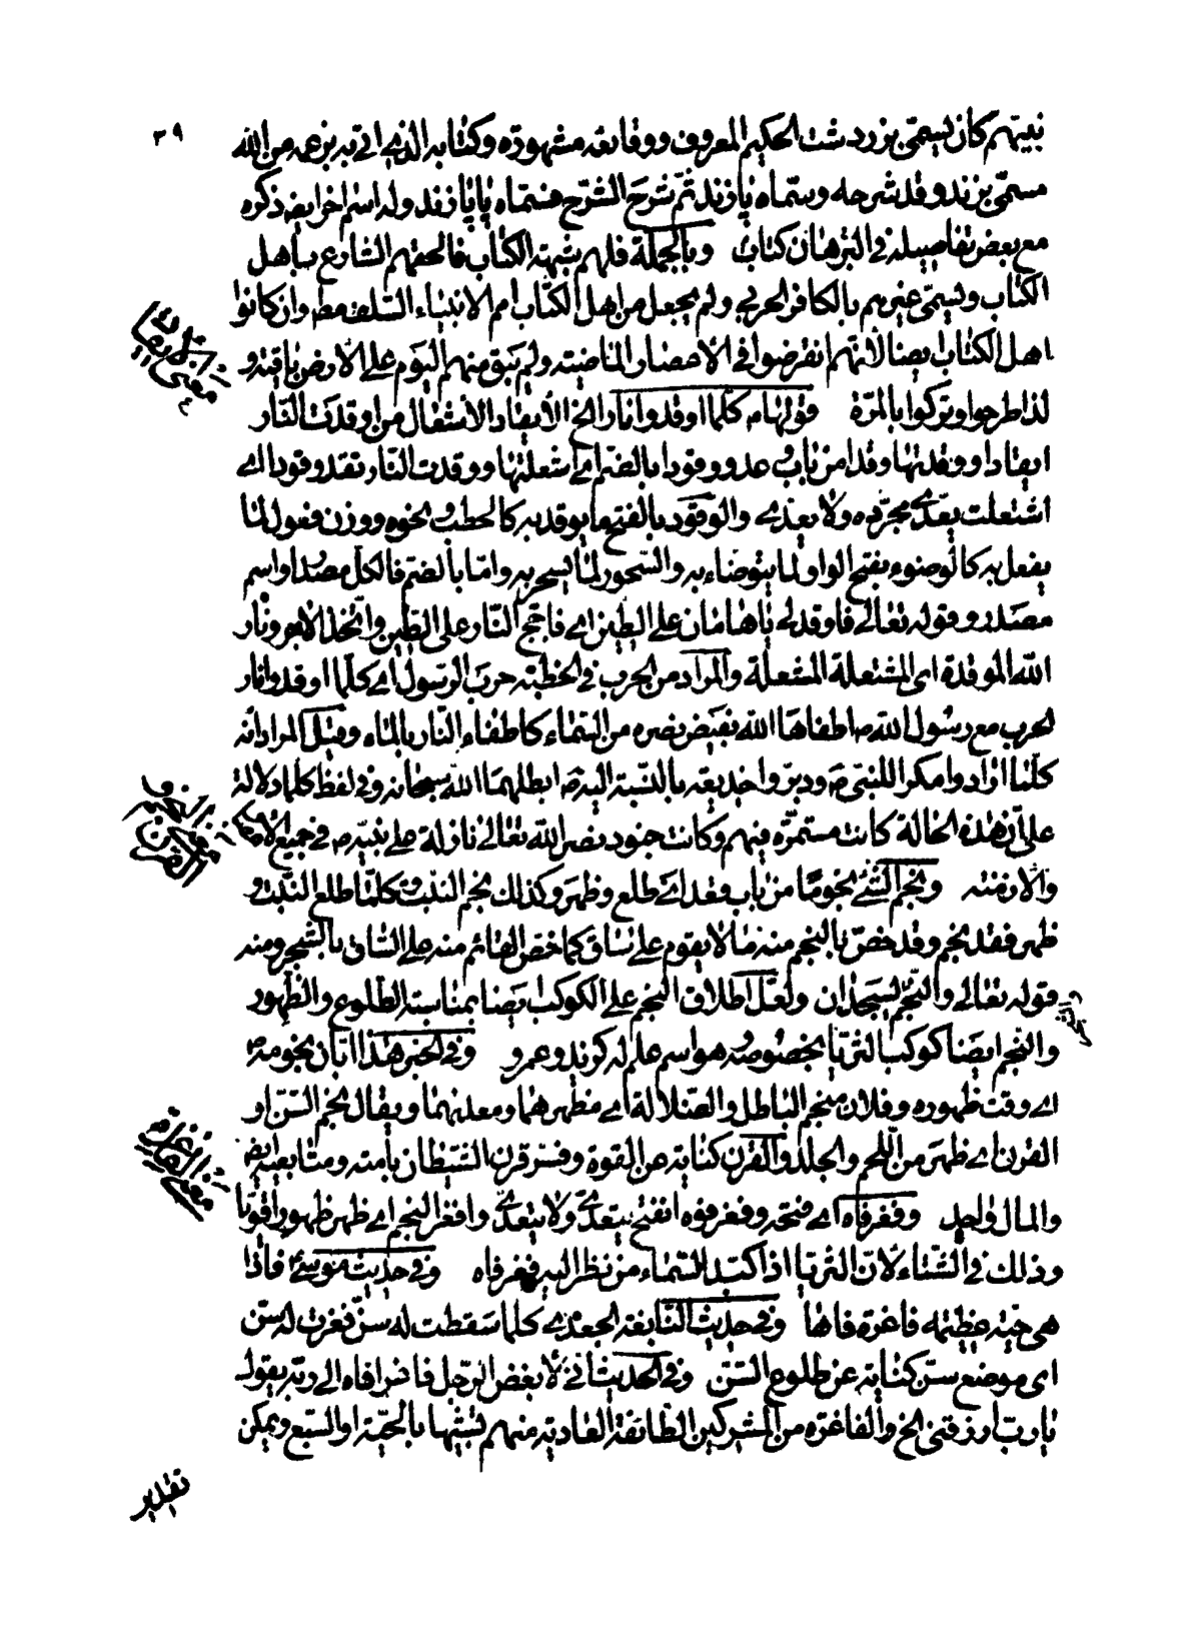 ٣٩
نبيّهم كان يسمّى بزردشت الحكيم المعروف ووقايعه مشهورة وكتابه الذي اتى به بزعمه من الله
مسمّى بزند وقد شرحه وسمّاه پازند ثمّ شرح الشرح فسمّاه پاپازند وله اسم اخر ايض ذكره
مع بعض تفاصيله في البرهان كتاب وبالجملة فلهم شبهة الكتاب فالحقهم الشارع باهل
الكتاب ويسمّى غيرهم بالكافر الحربي ولم يجعل من اهل الكتاب امم الانبياء السلف مط وان كانوا
اهل الكتاب ايضا لانّهم انقرضوا في الاعصار الماضية ولم يبق منهم اليوم على الارض باقية و
لذا طرحوا وتركوا بالمرّة قولها ع كلّما اوقدوا نارا الخ الايقاد الاشعال من اوقدت النّار
ايقادا ووقدتها وقدا من باب وعد ووقودا بالضم اي اشعلتها ووقدت النّار تقد وقودا اي
اشتعلت يتعدّى مجرّده ولا يتعدّى والوقود بالفتح ما يوقد به كالحطب ونحوه ووزن فعول لما
يفعل به كالوضوء بفتح الواو لما يتوضاء به والسّحور لما يتسحر به وامّا بالضم فالكل مصدر او اسم
مصدر وقوله تعالى فاوقد لي ياهامان على الطّين اي فاجّج النّار على الطّين واتّخذ الاجر ونار
الله الموقدة اي المشتعلة المشعلة والمراد من الحرب في الخطبة حرب الرّسول اي كلّما اوقدوا نار
الحرب مع رسول الله ص اطفاها الله بفيض نصره من السّماء كاطفاء النّار بالماء وقيل المراد انّه
كلّما ارادوا مكرا للنبيّ ص ودبّروا خديعة بالنّسبة اليه ص ابطلهما الله سبحانه وفي لفظ كلما دلالة
على أن هذه الحالة كانت مستمرّة فيهم وكانت جنود نصر الله تعالى نازلة على نبيّه ص في جميع الامكنة
والازمنة ونجم الشّئ نجومًا من باب قعد اي طلع وظهر وكذلك نجم النّبت وكلّما طلع النّبت و
ظهر فقد نجم وقد خصّ بالنّجم منه ما لا يقوم على ساق كما خصّ القائم منه على السّاق بالشّجر ومنه
قوله تعالى والنّجم والشجر يسجدان ولعلّ اطلاق النّجم على الكوكب ايضا بمناسبة الطّلوع والظّهور
والنّجم ايضا كوكب الثريّا بخصوصه وهو اسم علم له كزيد وعمرو وفي الخبر هذا ابّان نجومه ص
اي وقت ظهوره وفلان منجم الباطل والضّلالة اي مظهرهما ومعدنهما ويقال نجم السّنّ او
القرن اي ظهر من اللّحم والجلد والقرن كناية عن القوة وفسّر قرن الشّيطان بامته ومتابعيه ايض
والمال واحد وفغر فاه اي فتحه وفغر فوه انفتح يتعدّى ولا يتعدّى وافغر النّجم اي ظهر ظهورا قويّا
وذلك في الشّتاء لانّ الثريّا اذا كبّد السّماء من نظر اليه فغر فاه وفي حديث موسى ع فاذا
هي حيّة عظيمة فاغرة فاها وفي حديث النّابغة الجعدي كلّما سقطت له سنّ فغرت له سنّ
اي موضع سنّ كناية عن طلوع السّنّ وفي الحديث انّي لابغض الرّجل فاغرا فاه الى ربّه يقول
يا ربّ ارزقني الخ والفاغرة من المشركين الطّائفة العادية منهم تشبيها بالحيّة او السّبع ويمكن
تقدير